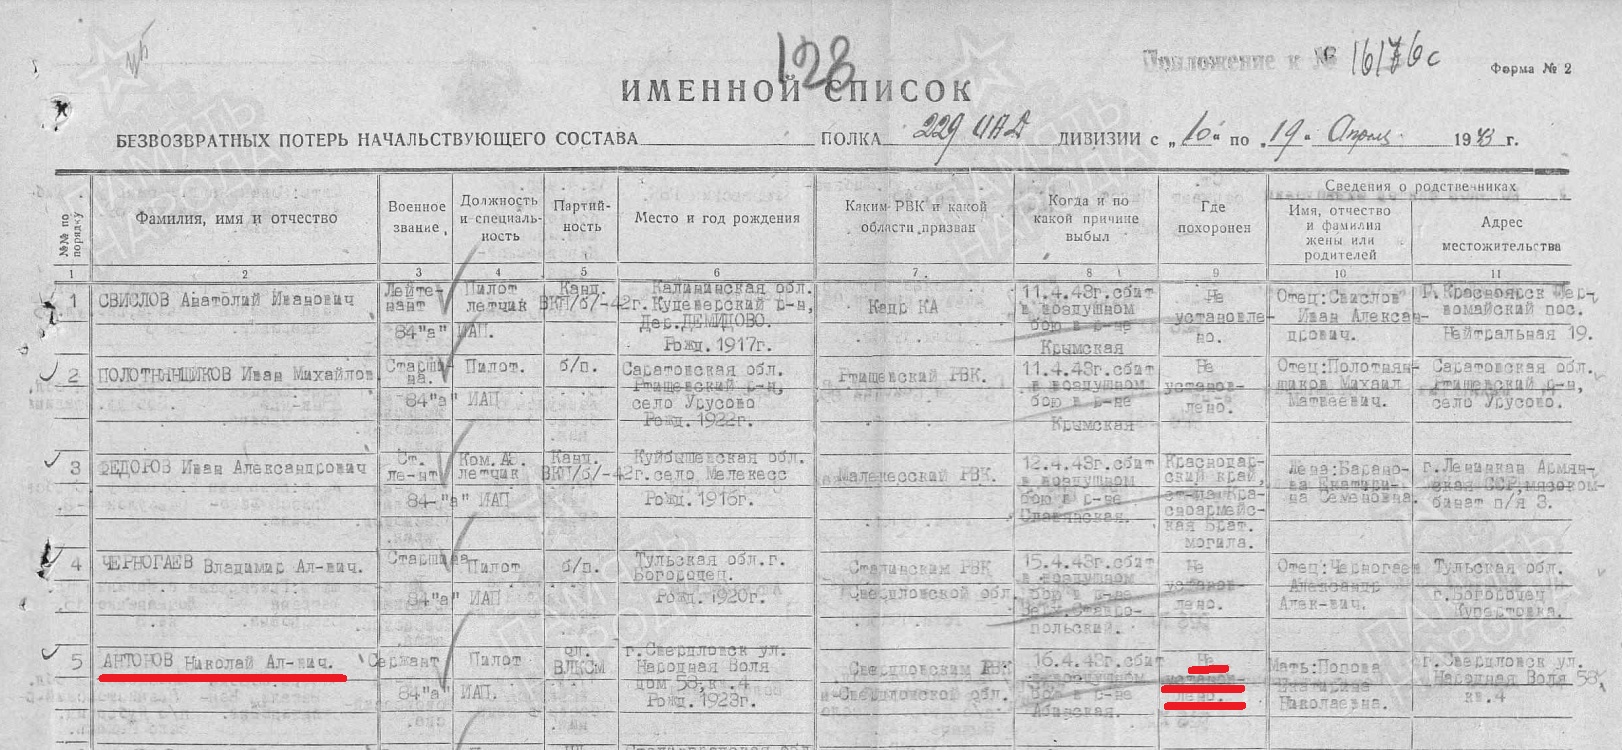 128
Приложение к № 16176с
Форма № 2
ИМЕННОЙ СПИСОК
БЕЗВОЗВРАТНЫХ ПОТЕРЬ НАЧАЛЬСТВУЮЩЕГО СОСТАВА ПОЛКА 229 ИАД ДИВИЗИИ с „10“ по „19“ Апреля 1943 г.
№№ по порядку
Фамилия, имя и отчество
Военное звание
Должность и специаль-ность
Партий-ность
Место и год рождения
Каким РВК и какой области призван
Когда и по какой причине выбыл
Где похоронен
Сведения о родственниках
Имя, отчество и фамилия жены или родителей
Адрес местожительства
1 2 3 4 5 6 7 8 9 10 11
1 СВИСЛОВ Анатолий Иванович Лейте- Пилот Канд. Калининская обл. Кадр КА 11.4.43г.сбит Не Отец:Свислов Г.Красноярск Пер-
нант летчик ВКП/б/-42г. Куденерский р-н, в воздушном установле- Иван Алексан- вомайский пос.
84"а" ИАП. Дер.ДЕМИДОВО. бою в р-не но. дрович. Нейтральная 19.
Рожд.1917г. Крымская
2 ПОЛОТНЯНЩИКОВ Иван Михайлов. Старши- Пилот. б/п. Саратовская обл. Ртищевский РВК. 11.4.43г.сбит Не Отец:Полотнян- Саратовская обл.
на. Ртищевский р-н, в воздушном установ- щиков Михаил Ртищевский р-н,
84"а" ИАП село Урусово бою в р-не лено. Матвеевич. село Урусово.
Рожд. 1922г. Крымская
3 ФЕДОРОВ Иван Александрович Ст. Ком.АЕ. Канд. Куйбышевская обл. Малекесский РВК. 12.4.43г.сбит Краснодар- Жена:Барано- г.Ленинкан Армян-
ле-нт летчик ВКП/б/-42г. село Мелекесс в воздушном ский край, ва Екатери- ская ССР,мясоком-
84-"а" ИАП Рожд.1916г. бою в р-не ст-ца Кра- на Семеновна. бинат п/я 3.
Славянская. сноармейс-
кая Брат.
могила.
4 ЧЕРНОГАЕВ Владимир Ал-вич. Старшина Пилот б/п. Тульская обл.г. Сталинским РВК 15.4.43г.сбит Не Отец:Черногаев Тульская обл.
Богородец. Свердловской обл. в воздушном установ- Александр г.Богородец
84"а" ИАП Рожд.1920г. бою в р-не лено. Алек-вич. Купертовка.
Верх.Ставро-
польский.
5 АНТОНОВ Николай Ал-вич. Сержант Пилот чл. г.Свердловск ул. Свердловским РВК 16.4.43г.сбит Не Мать:Попова г.Свердловск ул.
ВЛКСМ Народная Воля в воздушном установ- Екатерина Народная Воля 58,
84"а" ИАП. дом 58,кв.4 Свердловской обл. бою в р-не лено. Николаевна. кв.4
Рожд.1923г. Абинская.